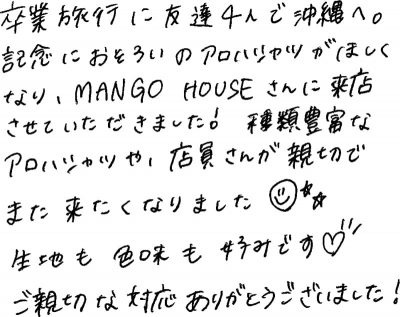 卒業旅行に友達4人で沖縄へ。
記念におそろいのアロハシャツがほしく
なり、MANGO HOUSEさんに来店
させていただきました! 種類豊富な
アロハシャツや、店員さんが親切で
また来たくなりました
生地も色味も好みです♡
ご親切な対応ありがとうございました!